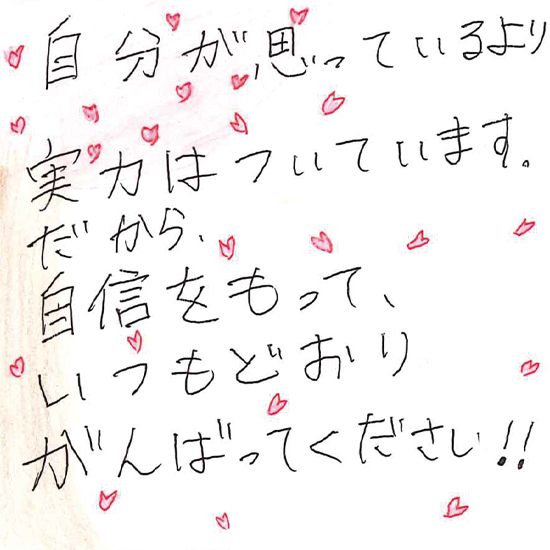 自分が思っているより
実力はついています。
だから、
自信をもって、
いつもどおり
がんばってください!!